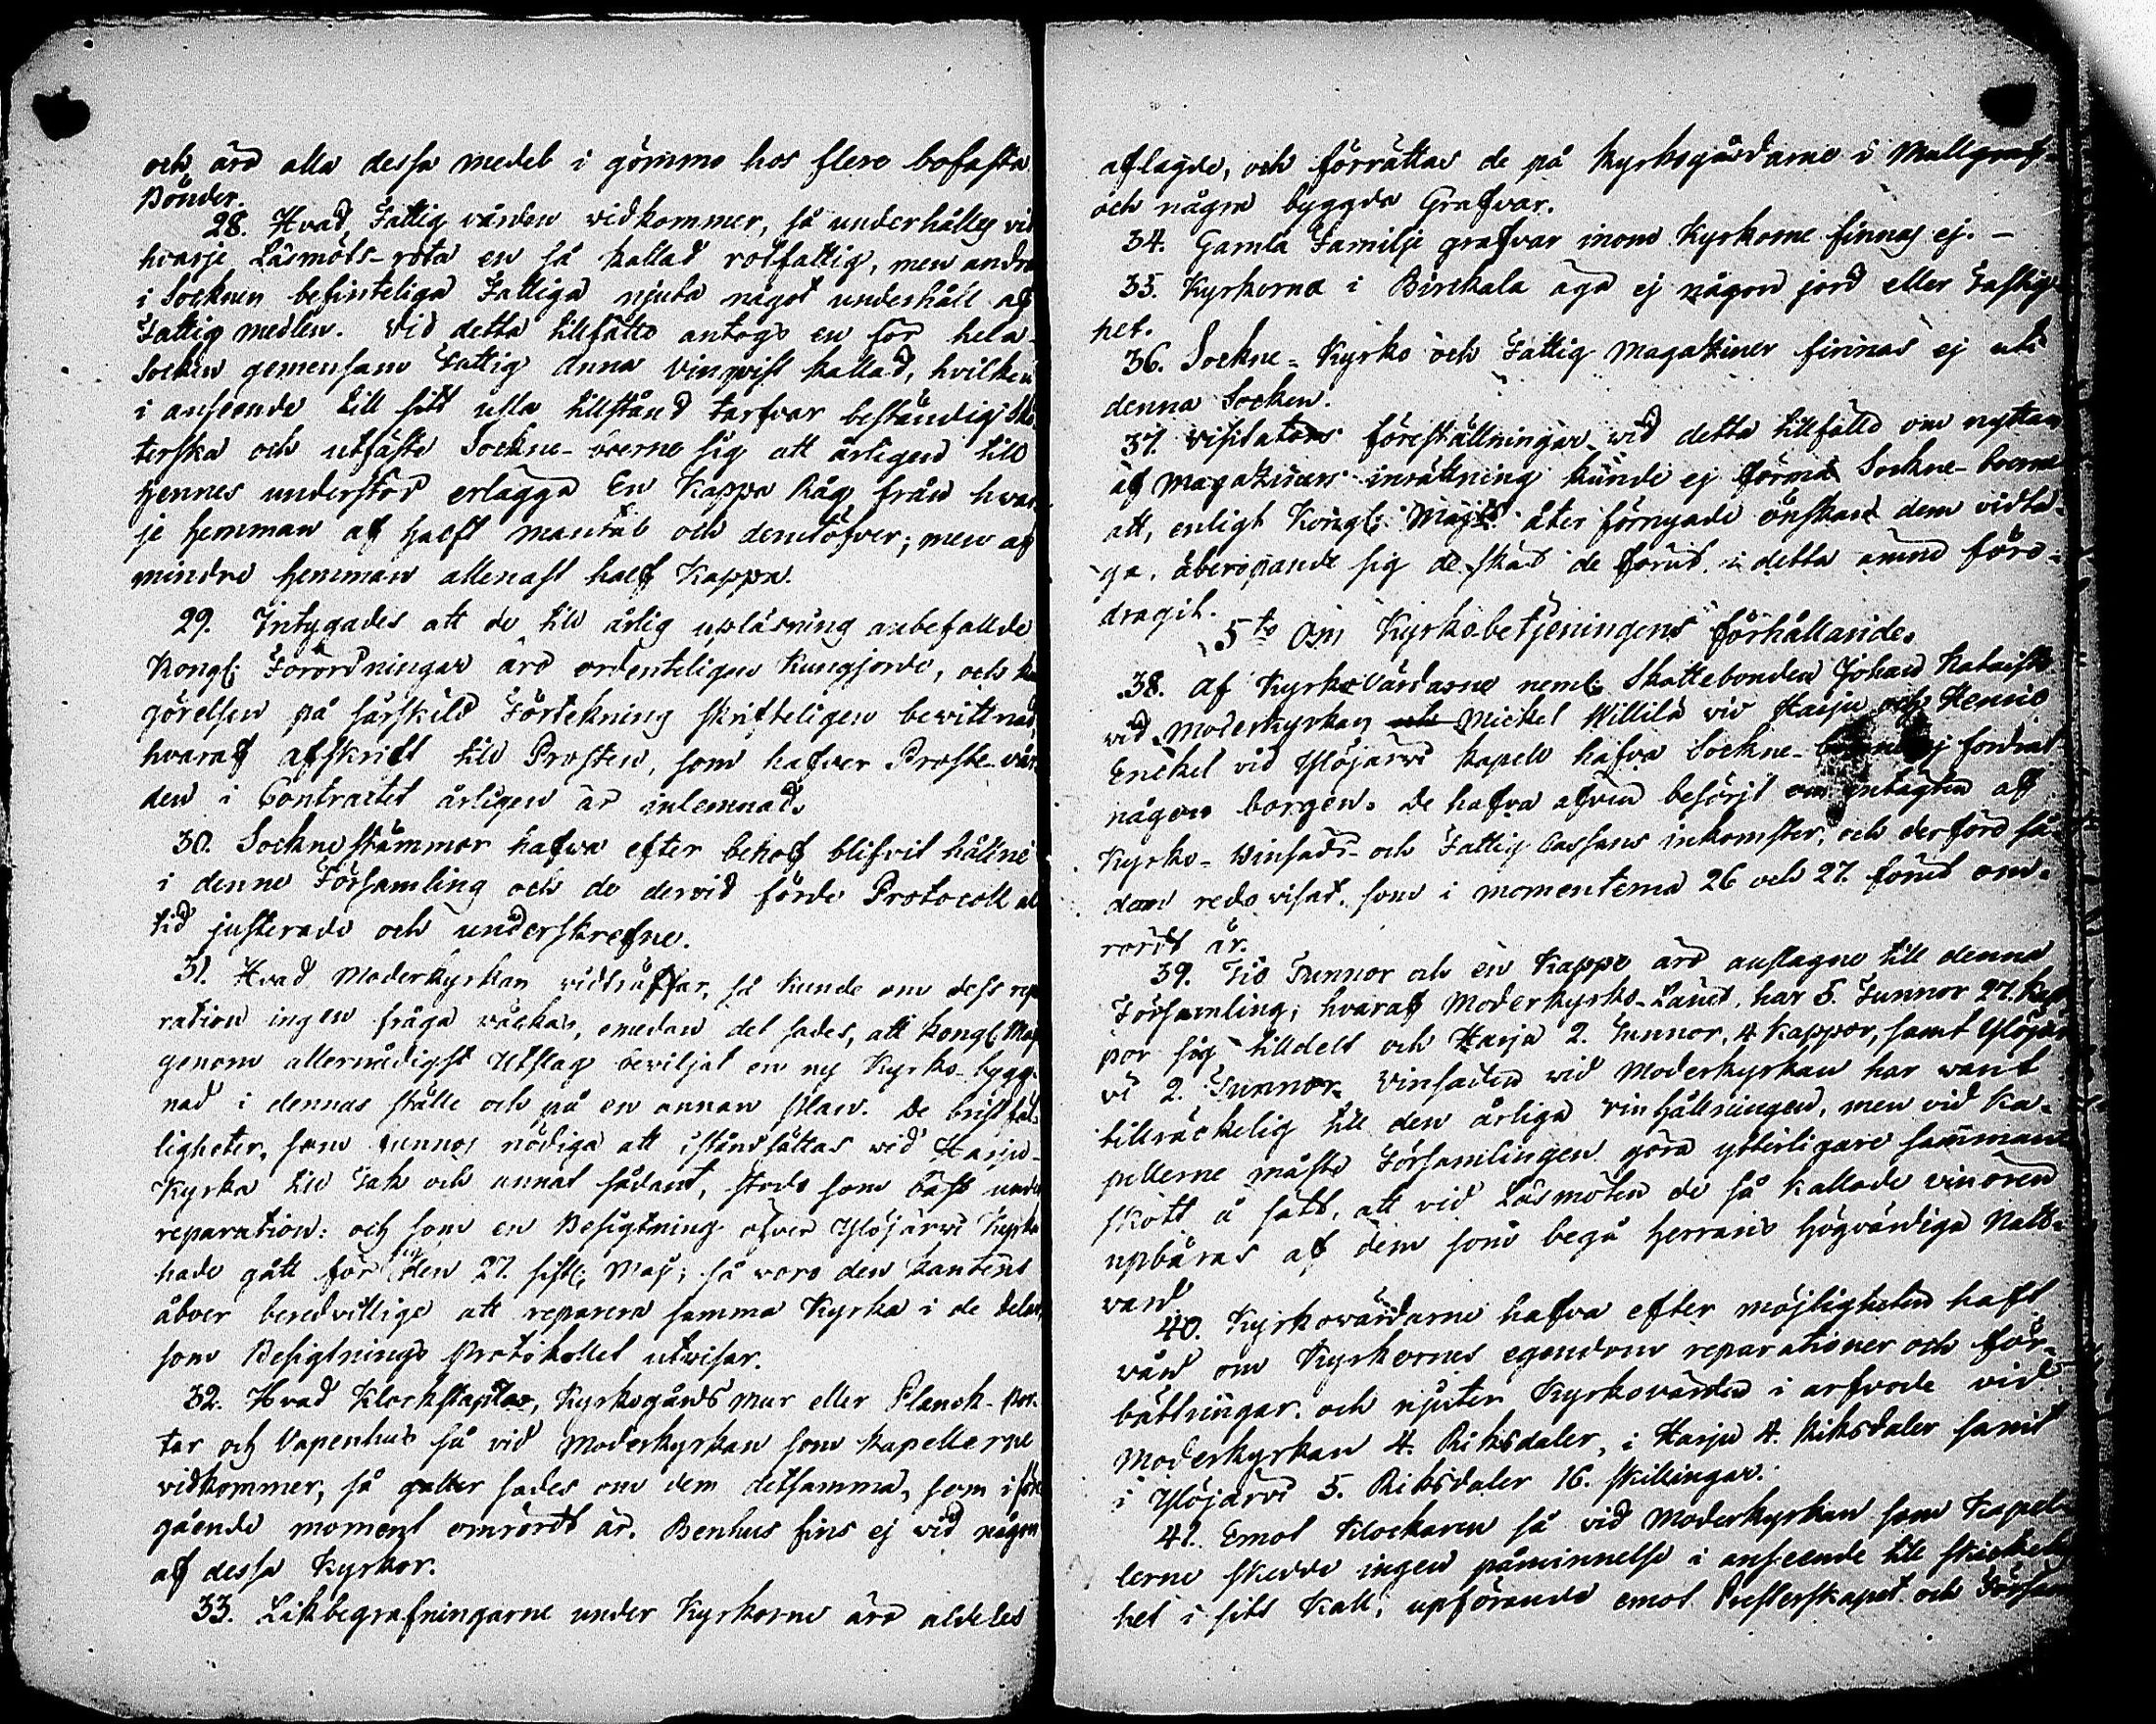 och äro alla dessa medel i gömmo hos flere bofasta
Bönder.
28. Hvad Fattig vården vidkommer, så underhålles vid
hvarje Läsmöts-rota en så kallad rotfattig, men andra
i Socknen befinteliga Fattiga njuta något underhåll af
Fattig medlen. Vid detta tillfälle antogs en för hela
Socken gemensam Fattig Anna Vinqvist kallad, hvilken
i anseende till sitt usla tillstånd tarfvar beständig Skö
terska och utfäste Sockne-boerne sig att årligen till
hennes understöd erlägga En Kappa Råg från hvar
je hemman af halft mantal och derutöfver; men af
mindre hemman allenast half Kappa.
29. Intygades att de till årlig upläsning anbefallde
Kongl: Förordningar äro ordenteligen kungjorde, och kun
görelsen på särskild Förtekning skrifteligen bevittnad,
hvaraf afskrift till Prosten, som hafver Proste-vår
den i Contractet årligen är inlemnad.
30. Sockne stämmor hafva efter behof blifvit hållne
i denne Församling och de dervid förde Protocoll al
tid justerade och underskrefne.
31. Hvad Moderkyrkan vidträffar, så kunde om dess repa
ration ingen fråga väckas, emedan det sades, att Kongl. Maj
genom allernådigst Utslag beviljat en ny Kyrko-bygg-
nad i dennas ställe och på en annan plan. De bristfäl-
ligheter, som funnos nödiga att iståndsättas vid Harju-
Kyrka till Tak och annat sådant, stodo som bäst under
reparation: och som en Besigtning öfver Ylöjärvi Kyrka
hade gått för sig den 27. sistl: Maj; så voro den kantens
åboer beredvillige att reparera samma Kyrka i de delar,
som Besigtnings Protokollet utvisar.
32. Hvad Klockstaplar, Kyrkogårds mur eller Planck-por-
tar och Vapenhus så vid Moderkyrkan som kapellerne
vidkommer, så sades om dem detsamma, som i före
gående moment omrördt är. Benhus fins ej vid någon
af dessa Kyrkor.
33. Likbegrafningarne under Kyrkorne äro aldeles
aflagde, och förrättas de på Kyrkogårdarne i Mullgraf-
och några byggda Grafvar.
34. Gamla Familje grafvar inom Kyrkorne finnas ej. —
35. Kyrkorna i Birckala äga ej någon jord eller Fastig-
het.
36. Sockne-Kyrko och Fattig Magaziner finnas ej uti
denna Socken.
37. Visitators föreställningar vid detta tillfälle om nyttan
af Magaziners inrättning kunde ej förmå Sockne-boerne
att, enligt Kongl: Majts åter förnyade önskan dem vidta-
ga, åberopande sig de skäl de förut i detta ämne före-
dragit.
5to Om Kyrkobetjeningens förhållande.
38. Af Kyrkovärdarne neml: Skattebonden Johan
vid Moderkyrkan Mickel Willilä vid Harju och Henric
Enckel vid Ylöjärvi Kapell hafva Sockne- ej fordrat
någon borgen. De hafva äfven besörjt om intägten af
Kyrko- Vinsäds- och Fattig Cassans inkomster, och derföre så-
dan redovisat, som i momenterna 26 och 27. förut om-
rördt är.
39. Tio Tunnor och en Kappe äro anslagne till denna
Församling; hvaraf Moderkyrko-Länet har 5. Tunnor 27. Kap
por sig tilldelt och Harju 2. Tunnor, 4 Kappor, samt Ylöjär
vi 2. Tunnor. Vinsäden vid Moderkyrkan har varit
tillräckelig till den årliga vinhållningen, men vid Ka-
pellerne måste Församlingen göra ytterligare samman
skott å sätt, att vid Läsmöten de så kallade vinören
upbäras af dem som begå Herrans Högvärdiga Natt-
vard
40. Kyrkovärdarne hafva efter möjligheten haft
vård om Kyrkornes egendom reparationer och för-
bättringar, och njuter Kyrkovärden i arfvode vid
Moderkyrkan 4. Riksdaler, i Harju 4. Riksdaler samt
i Ylöjärvi 5. Riksdaler 16. skillingar.
41. Emot Klockaren så vid Moderkyrkan som Kapel-
lerne skedde ingen påminnelse i anseende till skickelig
het i sitt kall, upförande emot Presterskapet och Församl